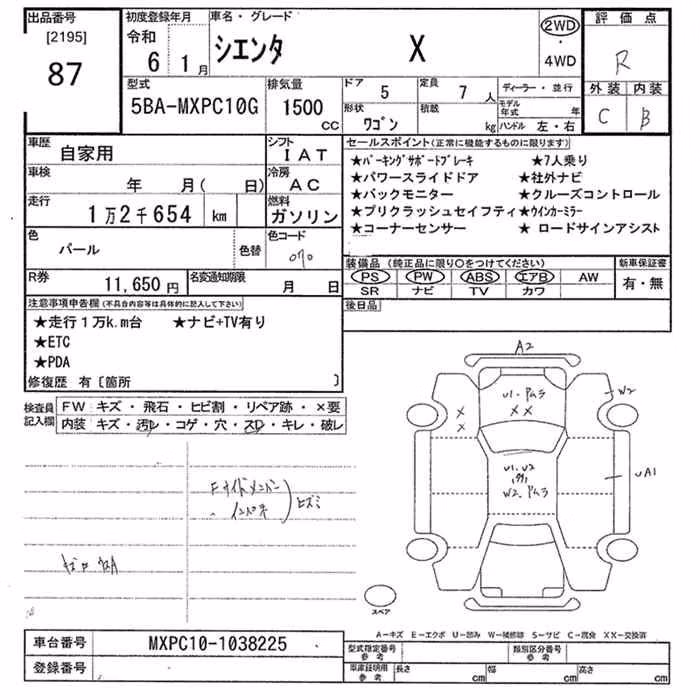 出品番号
[2195]
87
初度登録年月
令和
6 1月
車名・グレード
シエンタ X
2WD
・
4WD
評価点
R
外装 内装
C B
型式
5BA-MXPC10G
排気量
1500
CC
ドア 5
定員 7 人
形状 ワゴン
積載 kg
ディーラー・並行
モデル年式 年
ハンドル 左・右
車歴 自家用
シフト IAT
車検 年 月( 日)
冷房 AC
走行 1万2千654 km
燃料 ガソリン
色 パール
色替
色コード 070
R券 11,650円
名変通知期限 月 日
セールスポイント(正常に機能するものに限ります)
★パーキングサポートブレーキ ★7人乗り
★パワースライドドア ★社外ナビ
★バックモニター ★クルーズコントロール
★プリクラッシュセイフティ ★ウインカーミラー
★コーナーセンサー ★ロードサインアシスト
装備品(純正品に限り〇をつけてください)
新車保証書
PS PW ABS エアB AW
SR ナビ TV カワ
有・無
後日品
注意事項申告欄(不具合内容等は具体的に記入して下さい)
★走行1万k.m台 ★ナビ+TV有り
★ETC
★PDA
修復歴 有〔箇所 〕
検査員
記入欄
FW キズ・飛石・ヒビ割・リペア跡・×要
内装 キズ・汚レ・コゲ・穴・スレ・キレ・破レ
Fサイドメンバー
インパネ
ヒズミ
A2
U1・ドムラ
××
×
×
W2
U1、U2
W2、ドムラ
UA1
スペア
A―キズ E―エクボ U―凹み W―補修跡 S―サビ C―腐食 XX―交換済
車台番号 MXPC10-1038225
登録番号
型式指定番号
参考
類別区分番号
参考
車庫証明用
参考
長さ cm 幅 cm 高さ cm